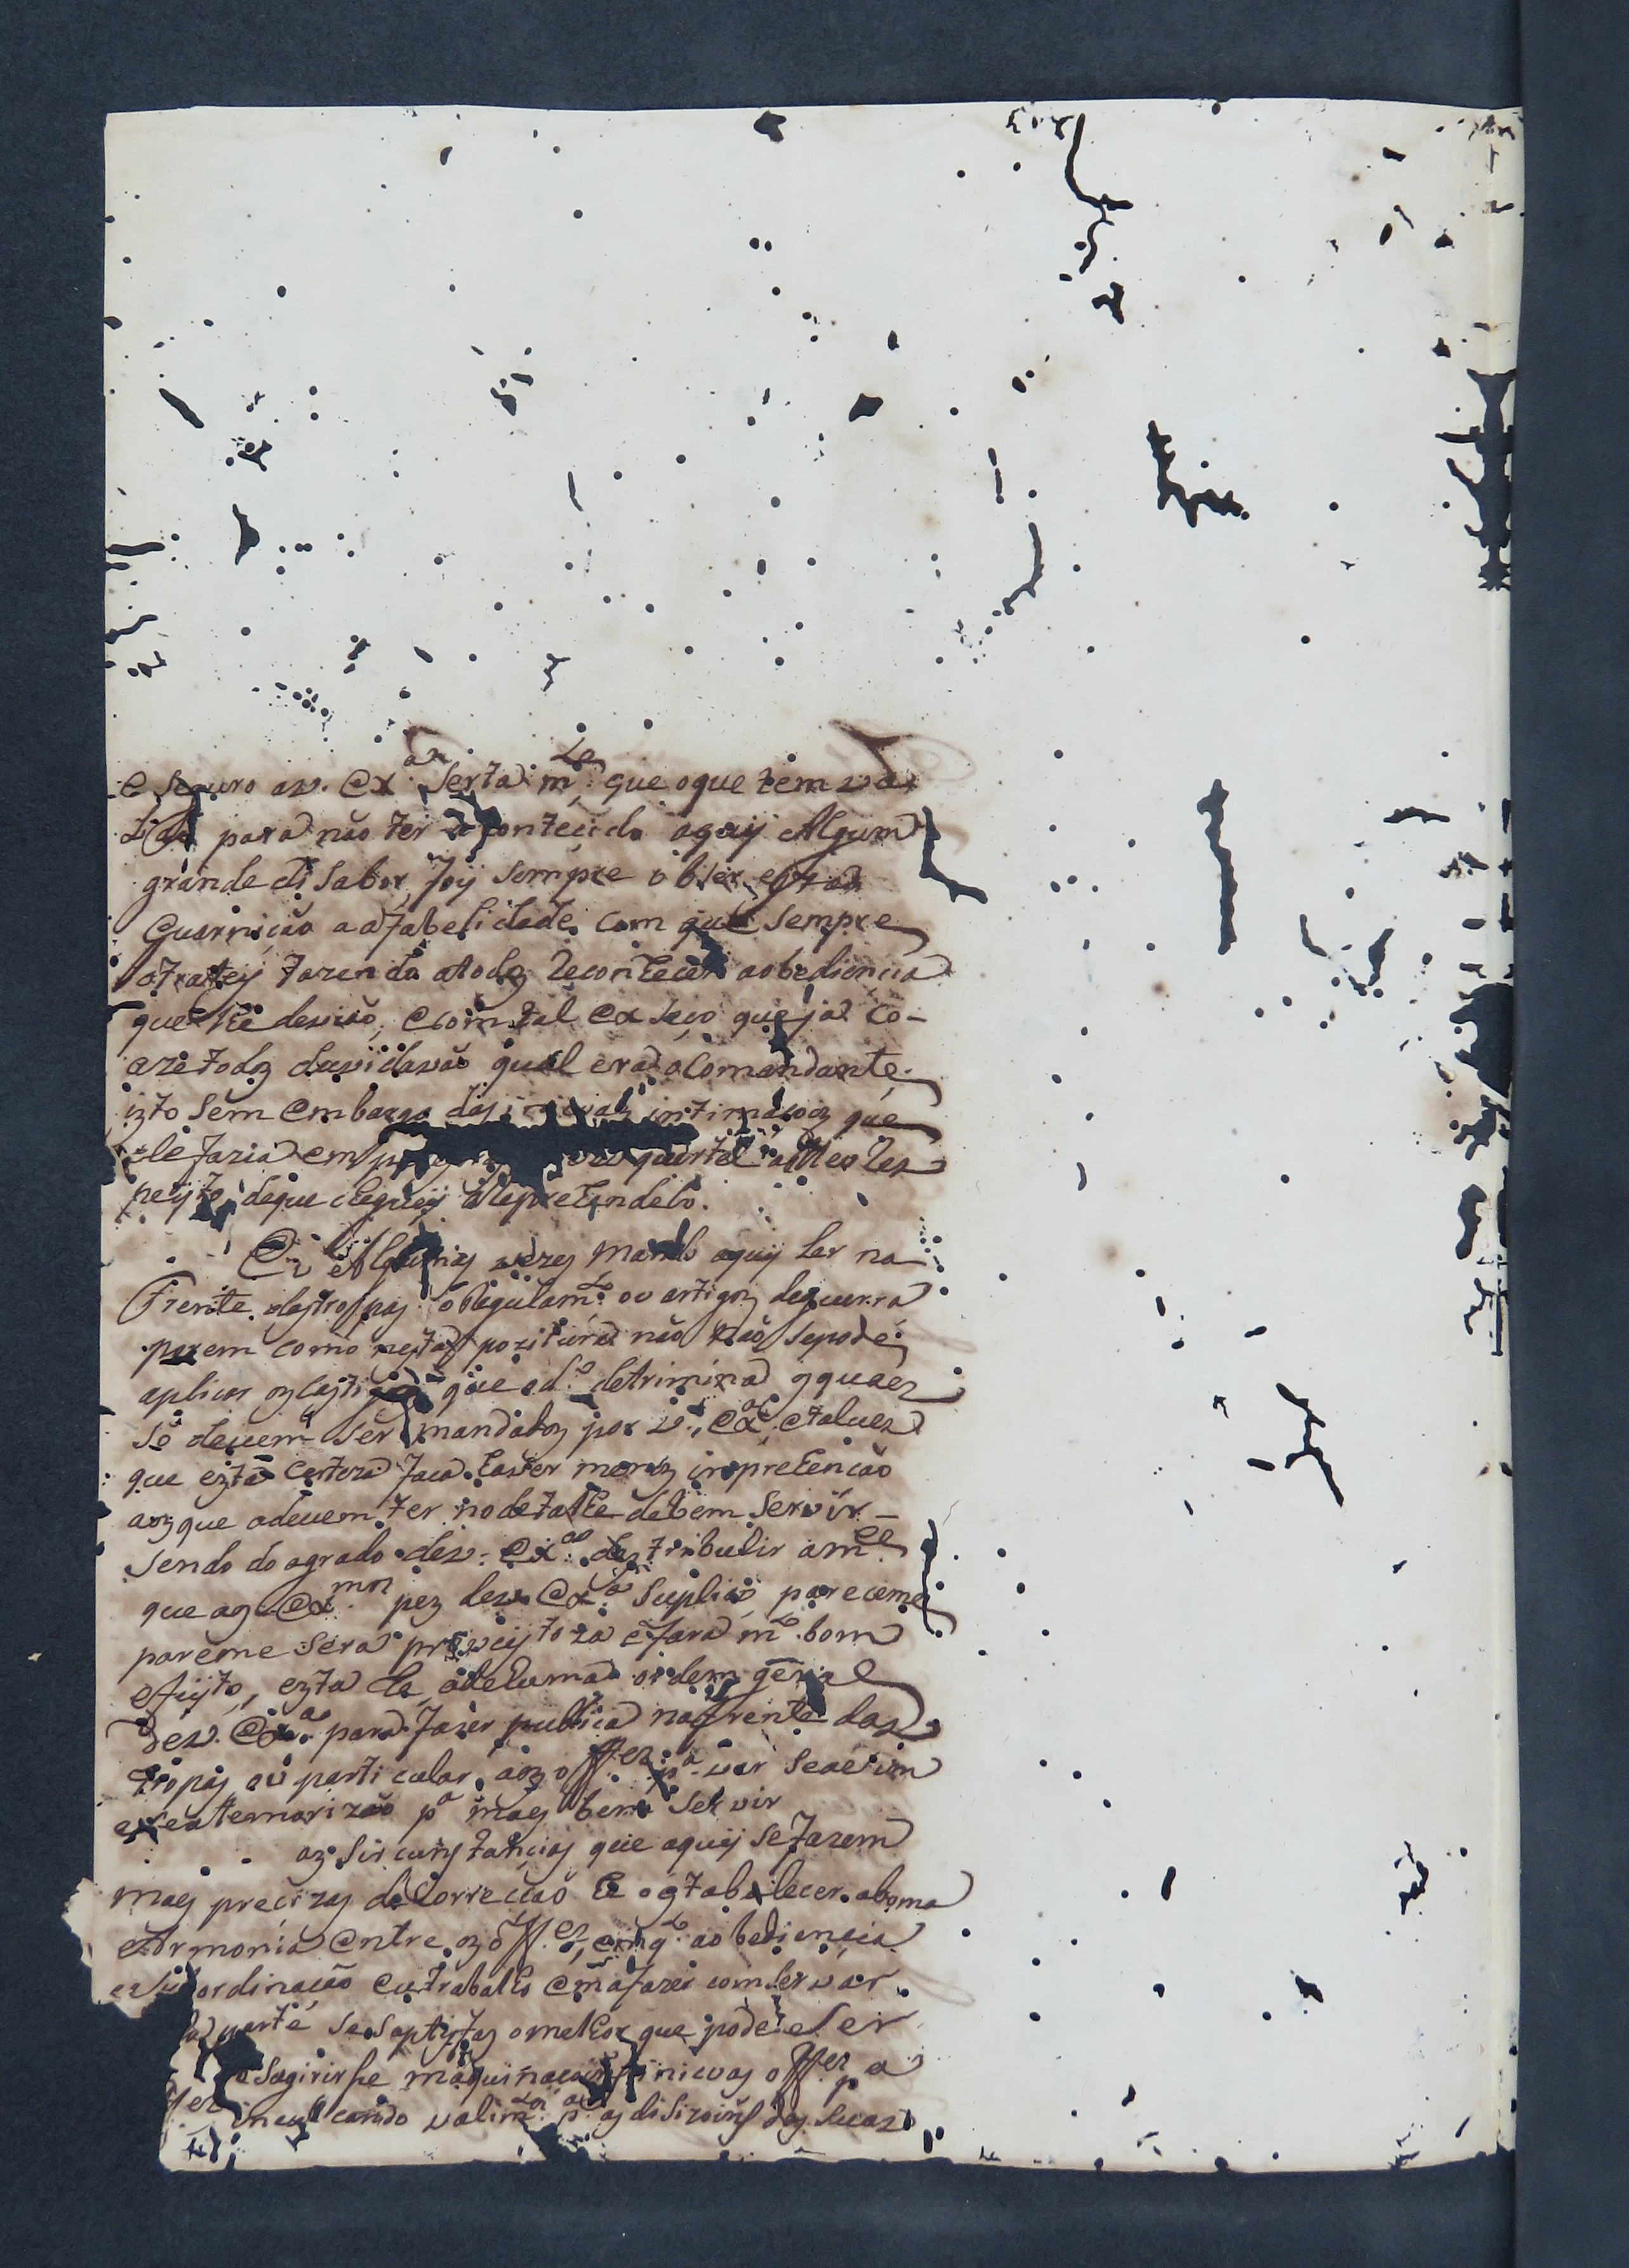 e Seguro a v. Exª Serta mte que oque tem va
para não ter acontecido aquy Algum
grande disabor, foy sempre obser
Guarnição a afabelidade com que sempre
otratey fazendo atodoz reconhecer aobediencia
que hé devido, e com tal Exseço que ja co-
aze todoz duvidavão qual era o Comandante,
izto sem embargo das intimaçoiz que
ele fazia em quartel
peyto deque cheguey aReprehendelo.
Eu Algumas vezes Mando aquy Ler na
Frente das tropas o Regulamto ou artigoz deguerra
porem como nesta pozitura não se pode
aplicar oz Casti que od.o detrimina oz quaez
só devem Ser mandadoz por v. Exª, e talvez
que ezta Certeza faça haver menoz inprehenção
aoz que adevem ter no detalhe debem Servir -
Sendo do agrado de v. Exª deztribuhir amce
que az Exmas pez de v. Exª Suplico, pareceme
pareme Será proveytoza e fará mto bom
efeyto, ezta hé, adehuma ordem geral
De v. Exª para fazer publica na frente das
tropas ou particular aoz offez pª ver se
e seatemorizão pª mays bem Servir
az Sircunstancias que aquy Se fazem
mays precizas de Correcção hé o estabalecer aboma
armonia entre oz offez, em q.to aobediencia
e Subordinação eu trabalho em afazer comservar.
parte Se Saptysfaz omelhor que pode Ser
Sugirirse maquinaçoiz inicuas offez pª
inculcando valimtos pª as disizoins das Suas